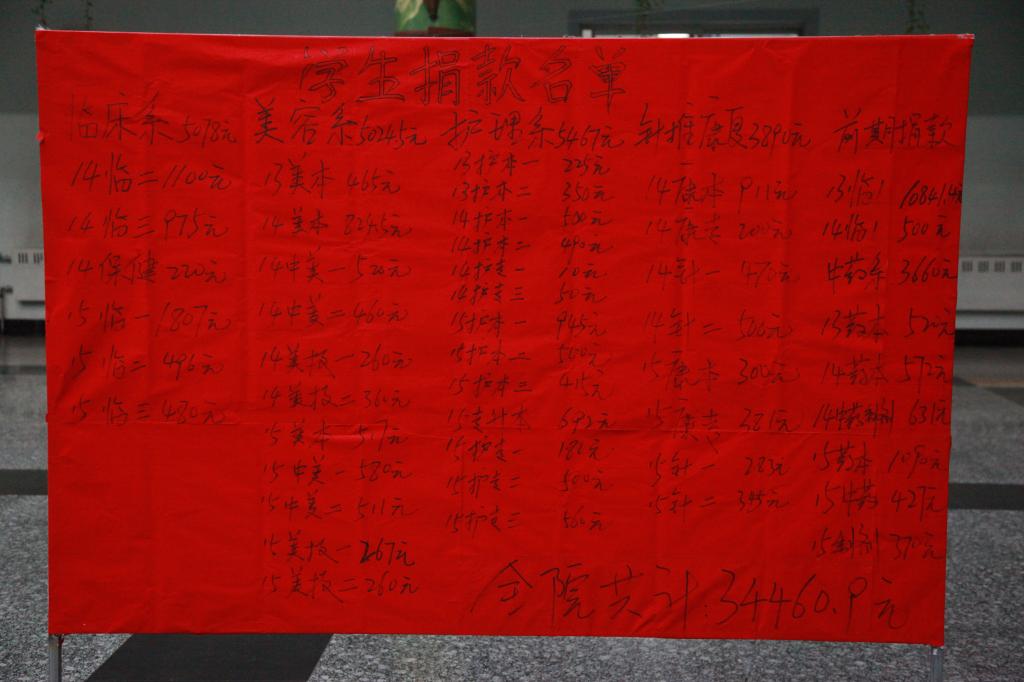 学生捐款名单
临床系5078元
14临二 1100元
14临三 975元
14保健 220元
15临一 1807元
15临二 496元
15临三 480元
美容系5024.5元
13美本 465元
14美本 824.5元
14中美一 520元
14中美二 460元
14美技一 260元
14美技二 360元
15美本 517元
15中美一 580元
15中美二 511元
15美技一 267元
15美技二 260元
护理系5467元
13护本一 225元
13护本二 350元
14护本一 500元
14护本二 490元
14护专一 10元
14护专三 50元
15护本一 945元
15护本二 500元
15护本三 415元
15专升本 692元
15护专一
15护专二 500元
15护专三 560元
针推康复3890元
14康本 911元
14康专 200元
14针一 470元
14针二 500元
15康本 300元
15康专 381元
15针一 283元
15针二
前期捐款
13临1 10841.4元
14临1 500元
中药系 3660元
13药本
14药本 572元
14中药制剂 631元
15药本 1090元
15中药 427元
15制剂 370元
全院共计:34460.9元